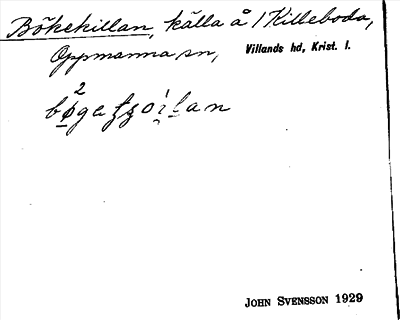 Bökekillan, källa å 1 Killeboda,
Oppmanna sn, Villands hd, Krist. l.
JOHN SVENSSON 1929